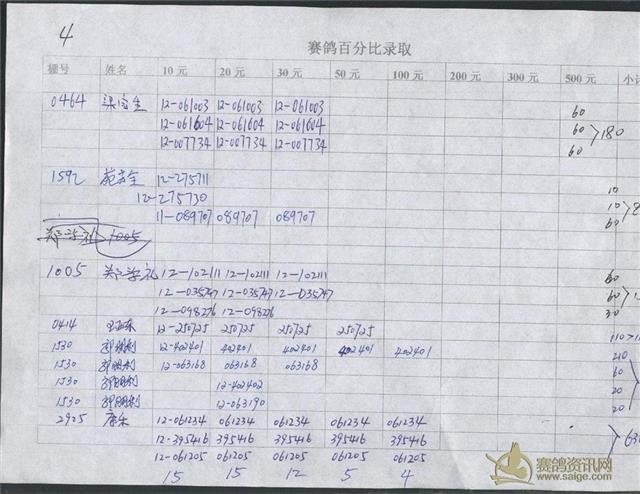 4
赛鸽百分比录取
棚号 姓名 10 元 20 元 30 元 50 元 100 元 200 元 300 元 500 元 小计
0464 12-061003 12-061003 12-061003 60
12-061604 12-061604 12-061604 60 >180
12-007734 12-007734 12-007734 60
1592 12-275711 10
12-275730 10
11-089707 089707 089707 60
1005
1005 郑学礼 12-102111 12-102111 12-102111 60
12-035747 12-035747 12-035747 60
12-098276 12-098276 30
0414 12-250725 250725 250725 250725 110
1530 12-402401 402401 402401 402401 402401 210
1530 12-063168 063168 063168 60
1530 12-402402 20
1530 12-063190 20
2905 12-061234 061234 061234 061234 061234
12-395416 395416 395416 395416 395416
12-061205 061205 061205 061205 061205
15 15 12 5 4
赛鸽资讯网
www.saige.com